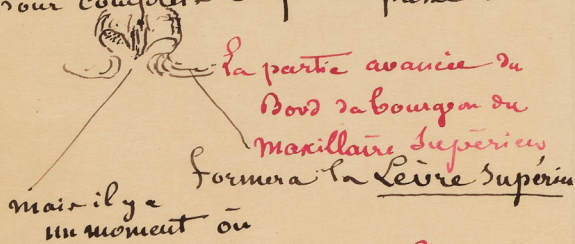 pour compléter
La partie avancée du
Bord du bourgeon du
Maxillaire Supérieur
formera la Lèvre Supérieu
mais il y a
un moment où